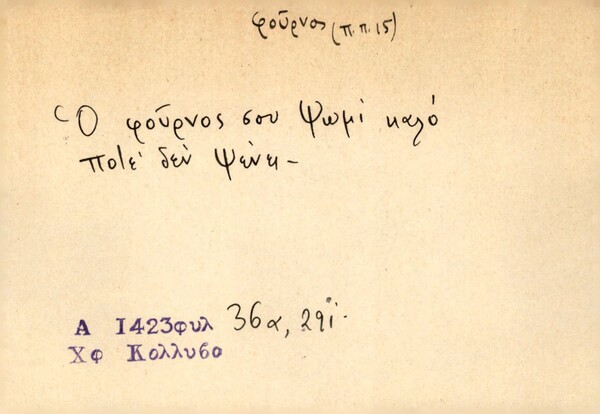 φοῦρνος (π.π. 15)
Ὁ φοῦρνος σου ψωμὶ καλό
ποτέ δὲν ψένει -
Α 1423φυλ 36α, 29i.
Χφ Κολλυβο